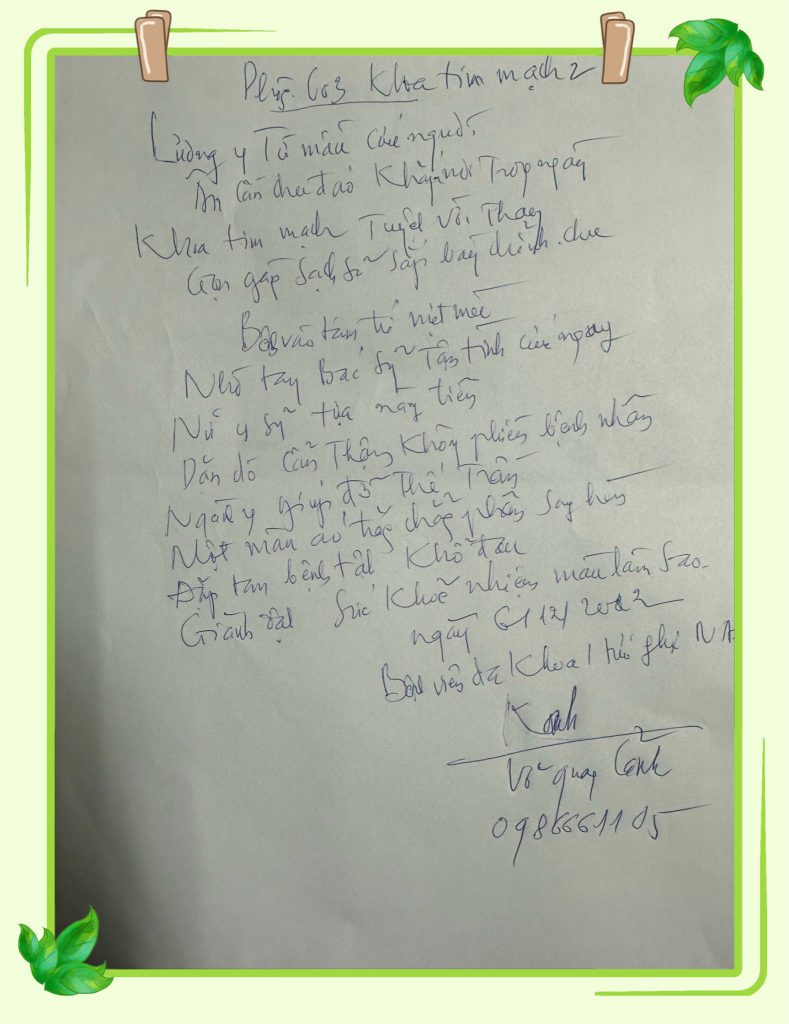 Phòng 603 Khoa tim mạch 2
Lương y Từ mẫu cứu người
Ân Cần chu đáo Khắp nơi Trong ngày
Khoa tim mạch Tuyệt Vời Thay
Gọn gàng sạch sẽ sắp bày chỉnh chu
Bệnh vào tâm tê mệt mỏi
Nhờ tay Bác Sỹ Tận tình cứu ngay
Nữ y sỹ tựa nàng tiên
Dặn dò Cẩn Thận Không phiền bệnh nhân
Ngành y giúp đỡ Thế Trần
Một màu áo trắng chẳng phân sang hèn
Đắp tan bệnh tật Khổ đau
Giành đạt sức Khoẻ nhiệm màu làm sao.
ngày 6/12/2022
Bệnh viện đa Khoa
Võ quang Cảnh
0986661105